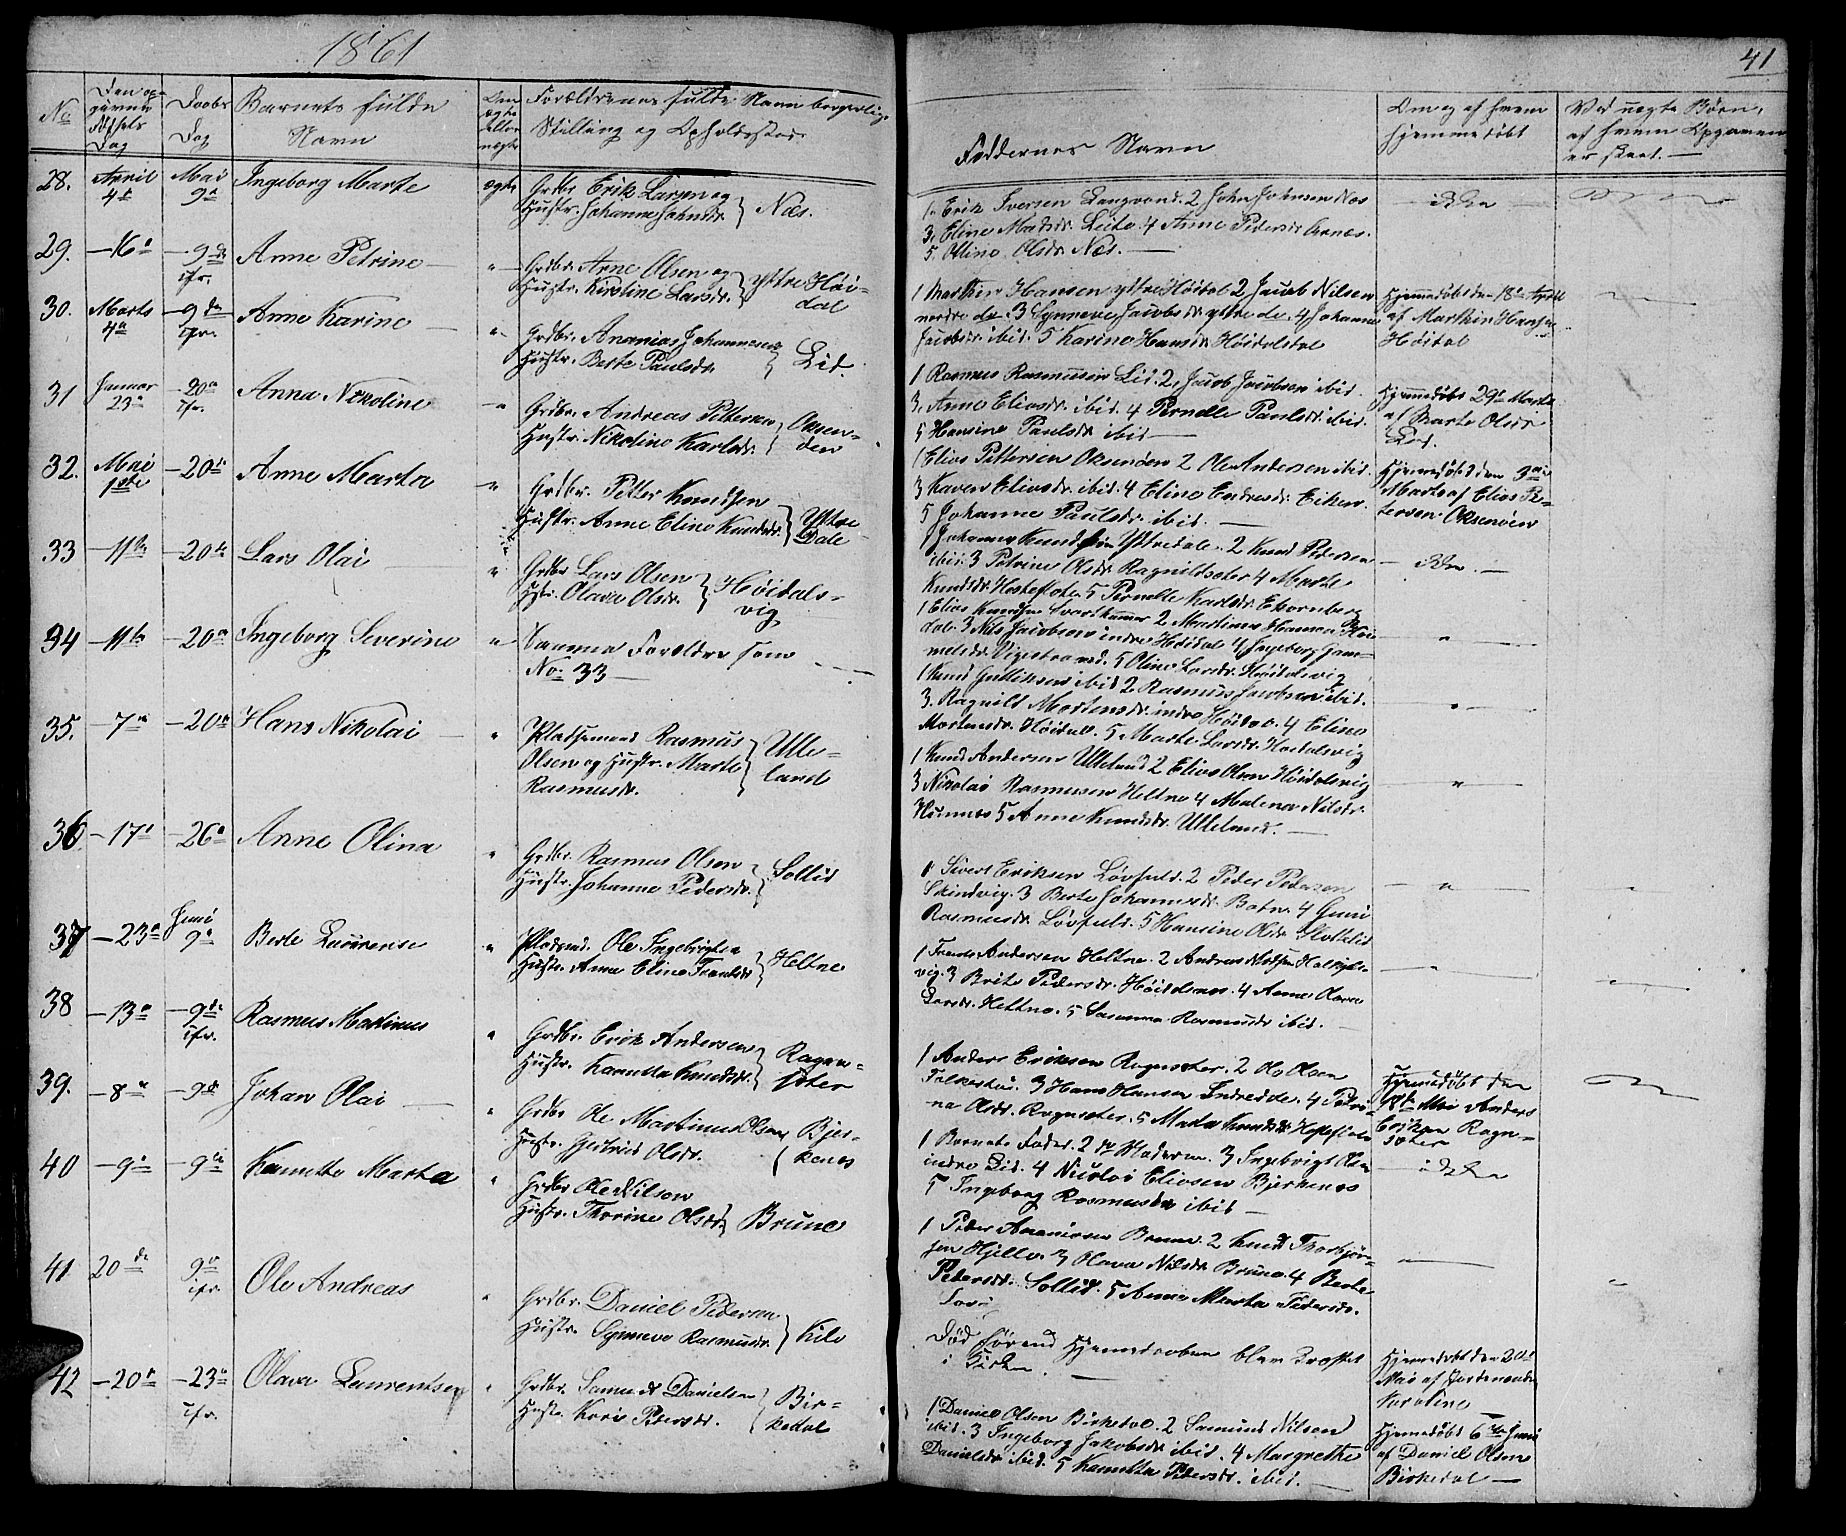 1861
41
No
Den opgivne Fødsels Dag
Daabs Dag
Barnets fulde Navn
Om ægte eller uægte
Forældrenes fulde Navn borgerlige Stilling og Opholdssted
Faddernes Navn
Om og af hvem hjemmedøbt
Ved uægte Børn, af hvem Opgaven er skeet.
28. April 4de Mai 9de Ingeborg Marte ægte
Grdbr. Erik Larsen og
Hustr. Johanne Johnsdr. } Næs.
1. Erik Iversen Langvand. 2 John Johnsen Næs
3. Eline Madsdr. Leite. 4 Anne Pedersdr.
5. Oline Olsdr. Næs.
ikke
29. 16de 9de ifr. Anne Petrine
Grdbr. Arne Olsen og
Hustr. Kirstine Larsdr. } Yttre Høidal
1 Marthin Hansen yttre Høidal 2 Jacob Nilsen
nordre do. 3 Synneve Jacobsdr. ytre do. 4 Johanne
Jacobsdr. ibid. 5 Karine Hansdr. Høidalsdal
Hjemmedøbt den 18de April
af Marthin Hansen
Høidal
30. Marts 4de 9de ifr. Anne Karine
Grdbr. Ananias Johannesen
Hustr. Berte Paulsdr. } Lid.
1 Rasmus Rasmussen Lid. 2, Jacob Jacobsen ibid.
3, Anne Eliasdr. ibid. 4 Pernelle Paulsdr. ibid.
5 Hansine Paulsdr ibid
Hjemmedøbt 29de Marts
af Marte Olsdr
Lid.
31 Januar 23de 20de ifr. Anna Nikoline
Grdbr. Andreas Pettersen
Hustr. Nikoline Karlsdr. } Oksenøen
1 Elias Pettersen Oksenøen 2 Ole Andersen ibid.
3 Karen Eliasdr. ibid. 4 Eline Endresdr. Eiksen.
5 Johanne Paulsdr. ibid.
Hjemmedøbt den 3die
Marts af Elias Petersen Oksenøen
32. Mai 1ste 20de Anne Marta
Grdbr. Petter Knudsen
Hustr. Anne Eline Knudsdr. } Yttre Dale
1 Johannes Knudsen Yttredale. 2 Knud Pedersen
ibid. 3 Petrine Olsdr. Ragnildsæter 4 Marte
Knudsdr. Hesteflote. 5 Pernelle Karlsdr. Ekornberg
ikke.
33 11te 20de Lars Olai
Grdbr Lars Olsen
Hstr. Olava Olsdr. } Høidalsvig
1 Elias Knudsen Svarthamer 2 Martinus Hansen Høidal. 3 Nils Jacobsen indre Høidal 4 Ingeborg
Vigestrand. 5 Oline Larsdr. Høidalsvig
34 11te 20de Ingeborg Severine
Samme Forældre som
No. 33
1 Knud Gulliksen ibid 2 Rasmus Jacobsen ibid.
3. Ragnild Mortensdr. indre Høidal. 4 Eline
Mortensdr. Høidal. 5 Marte Larsdr. Høidalsvig
35. 7de 20de Hans Nikolai
Pladsemand Rasmus
Olsen og Hustr. Marte
Rasmusdr. } Ulleland
1 Knud Andersen Ulleland 2 Elias Olsen Høidalsvig
3 Nikolai Rasmusen Heltne 4 Malena Nilsdr.
Humnes 5 Anne Knudsdr. Ulleland.
36 17de 26de Anne Olina
Grdbr. Rasmus Olsen
Hustr. Johanne Pedersdr. } Sollid
1 Sivert Eriksen Løvfald. 2 Peder Pedersen
Skindvig. 3 Berte Johannesdr. Botn. 4 Guni
Rasmusdr. Løvfald. 5 Hansine Olsdr.
37 23de Juni 9de Berte Laurense
Pladsmd. Ole Ingebrigtsen
Hustr. Anne Eline Frantsdr. } Heltne
1 Frants Andersen Heltne. 2 Andreas Madsen
3 Brite Pedersdr. Høidalsnes. 4 Anne Olava
Larsdr. Heltne. 5 Susanna Rasmusdr. ibid.
38 13de 9de ifr. Rasmus Matinus
Grdbr. Erik Andersen
Hustr. Kanutta Knudsdr. } Ragnsæter
1 Anders Eriksen Ragnsæter. 2 Ole Olsen
Falkestad. 3 Hans Hansen Endredde. 4 Petrina Olsdr. Ragnsæter. 5 Marta Knudsdr Hesteflote
Hjemmedøbt den
18de Mai Anders
Eriksen Ragnsæter
39. 8de 9de Johan Olai
Grdbr Ole Martinus Olsen
Hustr. Gjertrud Olsdr. } Bjerkenæs
1 Barnets Fader. 2 do Moder. 3 Ingebrigt Olsen
indre Lid. 4 Nicolai Eliasen Bjerkenes
5 Ingeborg Rasmusdr ibid
ikke
40 9de 9de Kanutte Marta
Grdbr Ole Nilsen
Hustr. Thorine Olsdr. } Brune
1 Peder Ananiassen Brune. 2 Knud Thorbjørnsen Hjelle. 3 Olava Nilsdr Brune. 4 Berte
Pedersdr. Sollid. 5 Anne Marta Pedersdr.
41 20de 9de ifr. Ole Andreas
Grdbr. Daniel Pedersen
Hustr. Synneve Rasmusdr. } Kile
Død førend Hjemmedaaben blev stadfæstet
i Kirken.
Hjemmedøbt den 20de
Mai af Jordemoder
Karoline
42 20de 23de ifr. Olava Laurentse
Grdbr. Samund Danielsen
Hustr. Kari Pedersdr. } Birkedal
1 Daniel Olsen Birkedal. 2 Samund Nilsen
ibid. 3 Ingeborg Jakobsdr ibid. 4 Margrethe
Danielsdr ibid. 5 Kanutta Pedersdr. ibid.
Hjemmedøbt 6te Juni
af Daniel Olsen
Birkedal